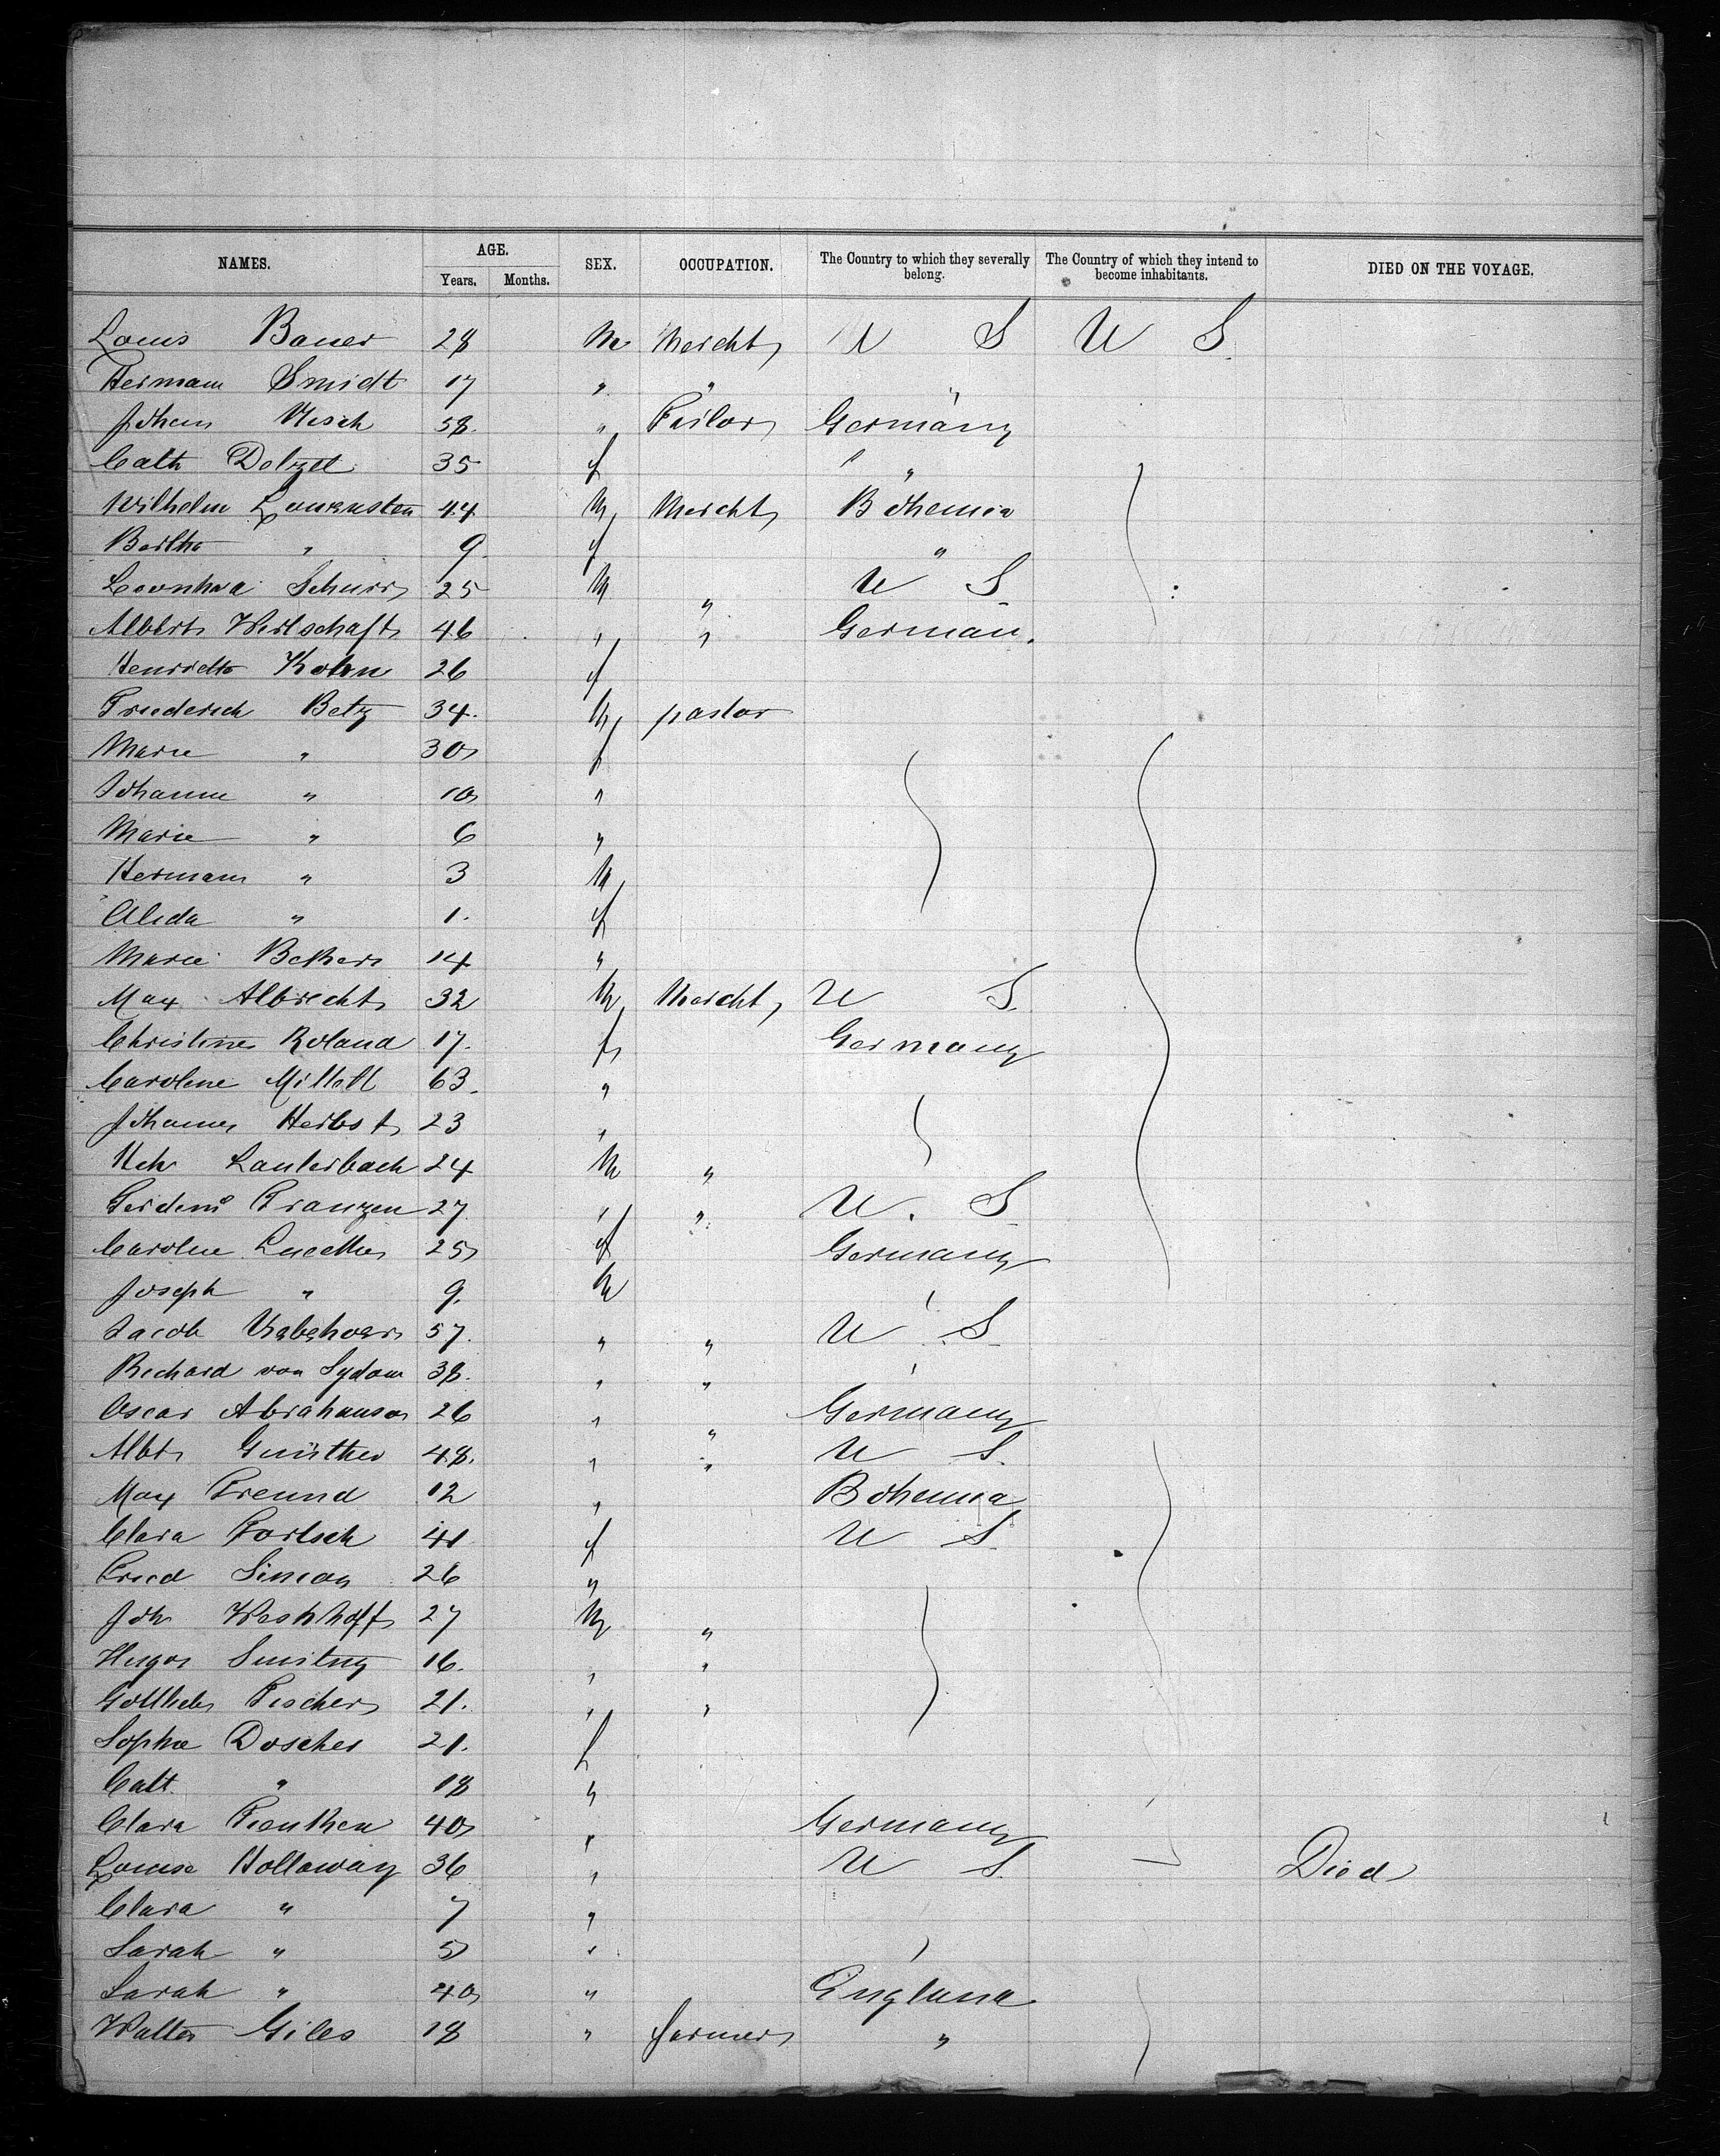 NAMES. AGE. SEX. OCCUPATION. The Country to which they severally belong. The Country of which they intend to become inhabitants. DIED ON THE VOYAGE.
Years. Months.
Louis Bauer 28 M Mercht U S U S
Hermann Smidt 17 " "
Johan 58 " Tailor Germany
Cath 35 f "
Wilhelm 44 M Mercht Bohemia
Bertha " 9 f "
Schurr 25 M " U S
Albert Wirtschaft 46 " " German.
Henrietta Kohn 26 f
Friederich Betz 34 M pastor
Marie " 30 f
Johanne " 10 "
Marie " 6 "
Hermann " 3 M
Alida " 1 f
Marie Bekker 14 "
Max Albrecht 32 M Mercht U S
Christine Roland 17 f Germany
Caroline Mittell 63 "
Johanna Herbst 23 "
Lauterbach 24 M "
Franzen 27 " " U. S
Caroline 25 f Germany
Joseph " 9 M
Jacob 57 " " U S
Richard von Sydow 38 " "
Oscar Abrahamson 26 " " Germany
Albt Günther 48 " " U S
Max Freund 12 " Bohemia
Clara 41 f U S
Fried Simon 26 "
Joh Westhoff 27 M "
Hugo 16 " "
Gottlieb Fischer 21 " "
Sophie Doscher 21 f
Cath " 18 "
Clara 40 " Germany
Louise Hollaway 36 " U S Died
Clara " 7 "
Sarah " 5 "
Sarah " 40 " England
Walter Giles 18 " farmer "